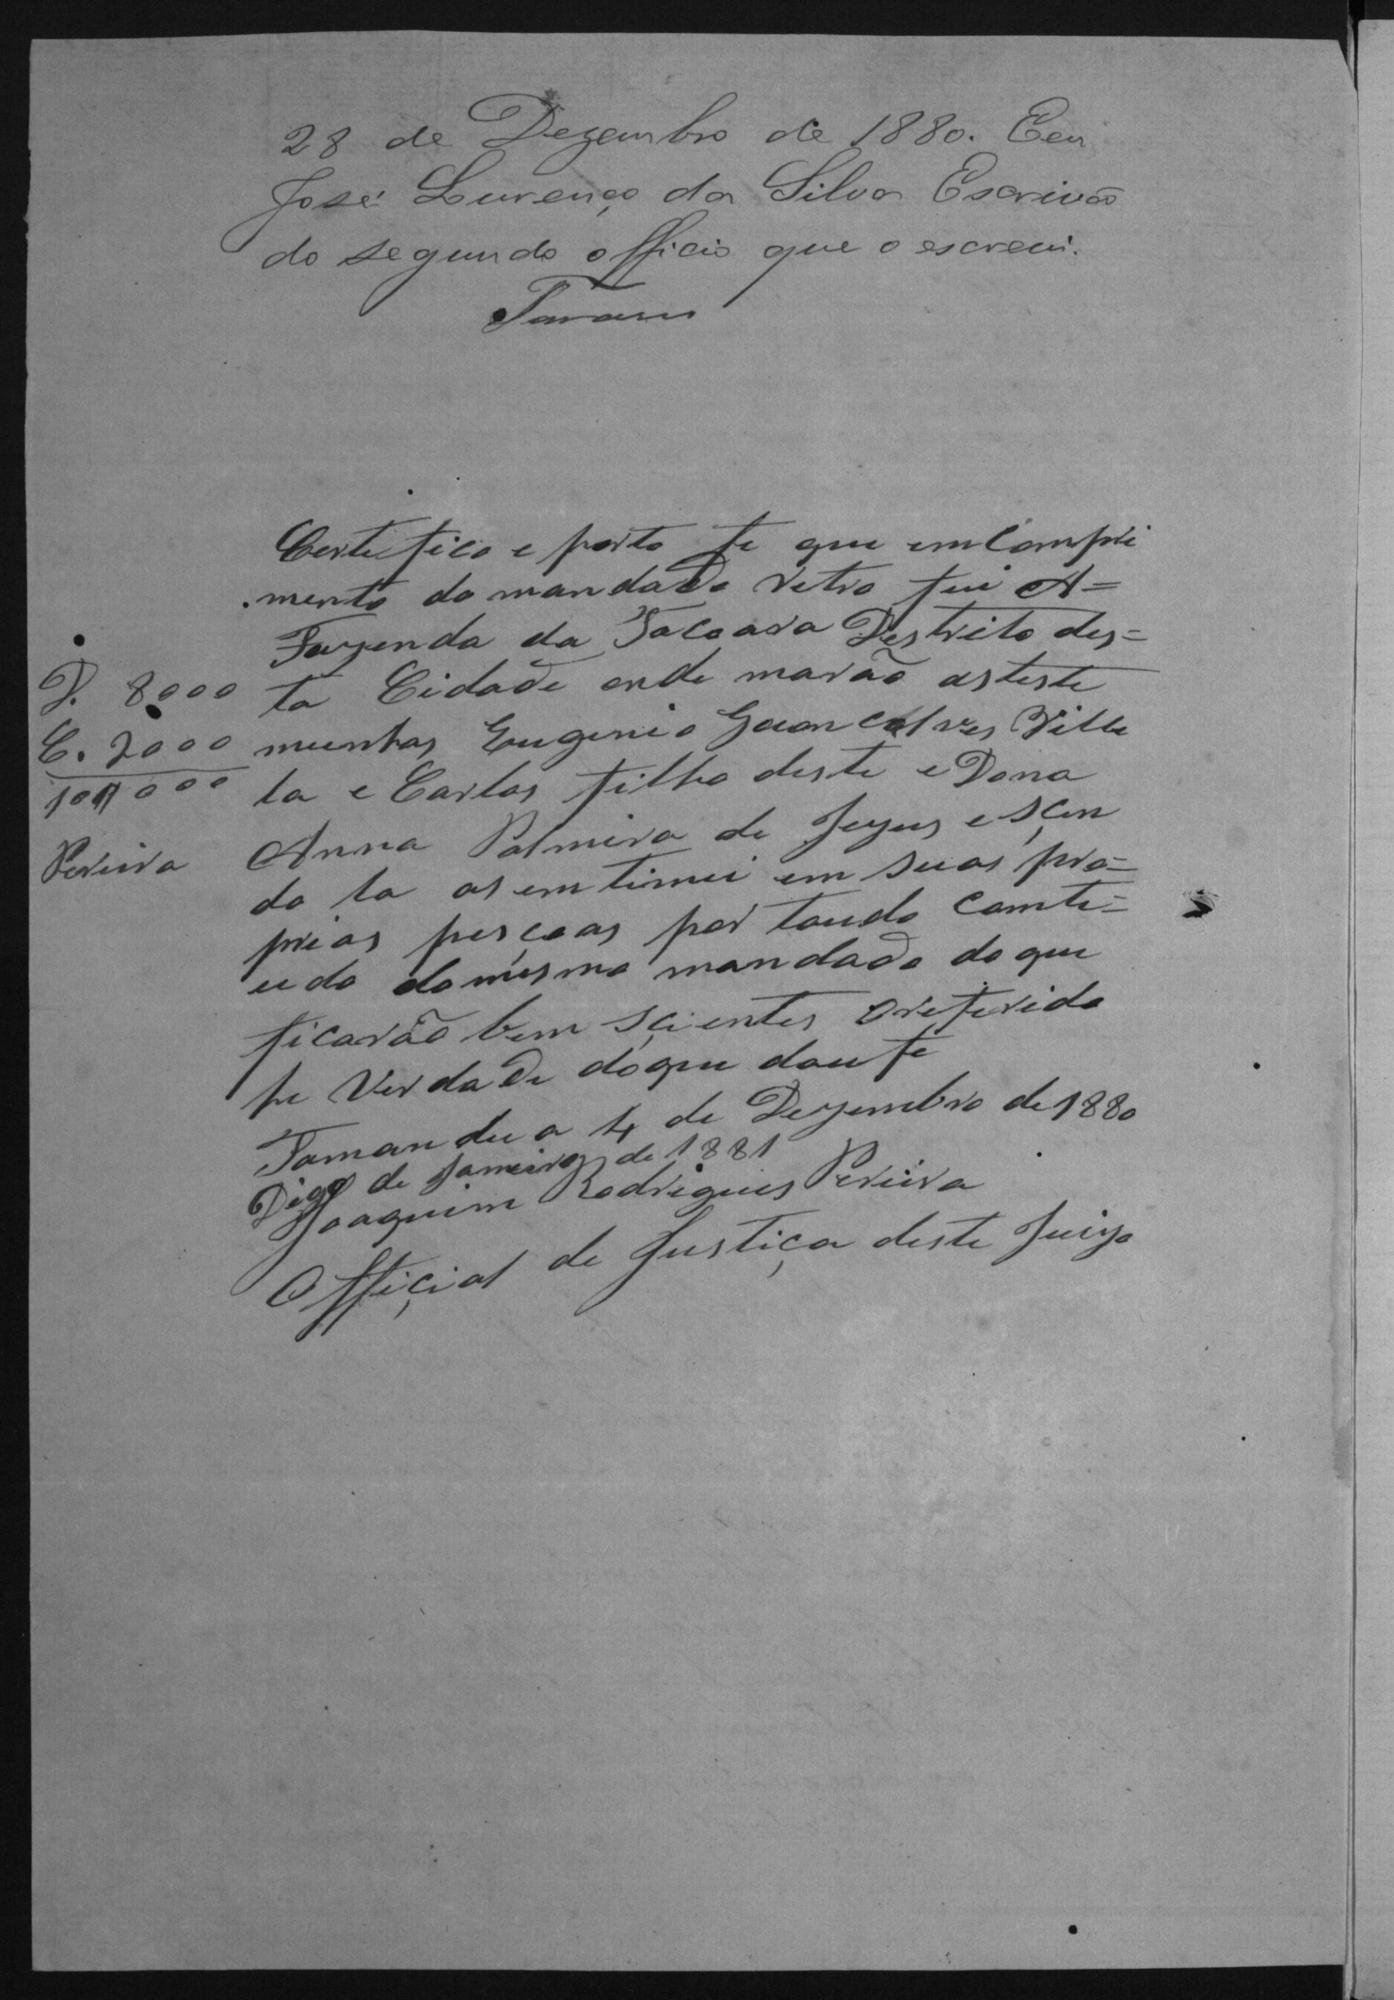 28 de Dezembro de 1880. Eeu
José Lurenço da Silva Escrivão
do segundo officio que o escrevi.
Tavares
Certefico e porto fe que em Compri
mento do mandado retro fui A=
Fazenda da Tacoara Destrito des=
ta Cidade onde marão as teste
muntas Eugenio Goancalves Ville
la e Carlos filho deste e Dona
Anna Palmira de Jezus e sçen
do la as emtimei em suas pro=
prias pesçoas por toudo comte=
udo do mesmo mandado do que
ficarão bem sçientes O referido
he verdade do que dou fe
Tamandua 4 de Dezembro de 1880
Digo de Janeiro de 1881
Joaquim Rodrigues Pereira
Offiçial de Justiça deste Juizo
D. 8000
C. 2000
10$000
Pereira